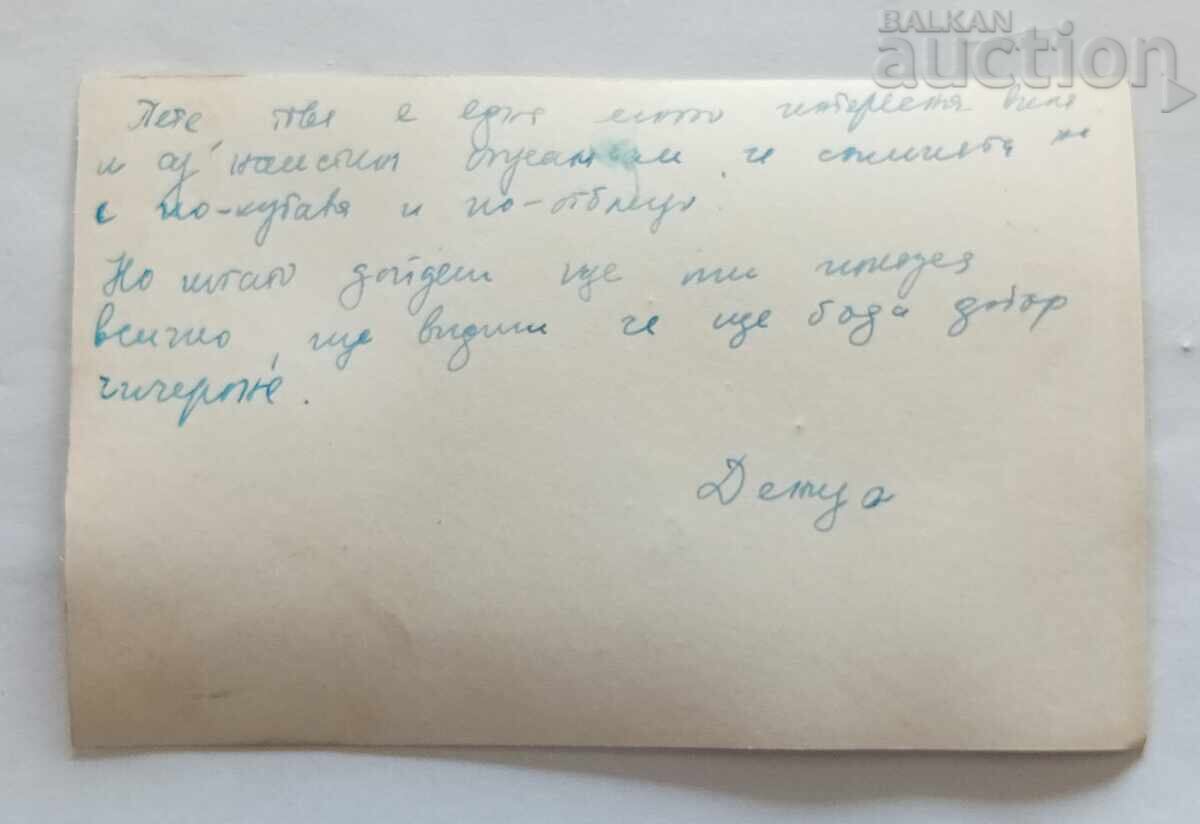 BALKAN
auction
Пете, това е една много интересна вила
и аз наистина че снимката не
е по-хубава и по-отблизо.
Но когато дойдеш ще ти покажа
всичко, ще видиш че ще бъда добър
чичероне.